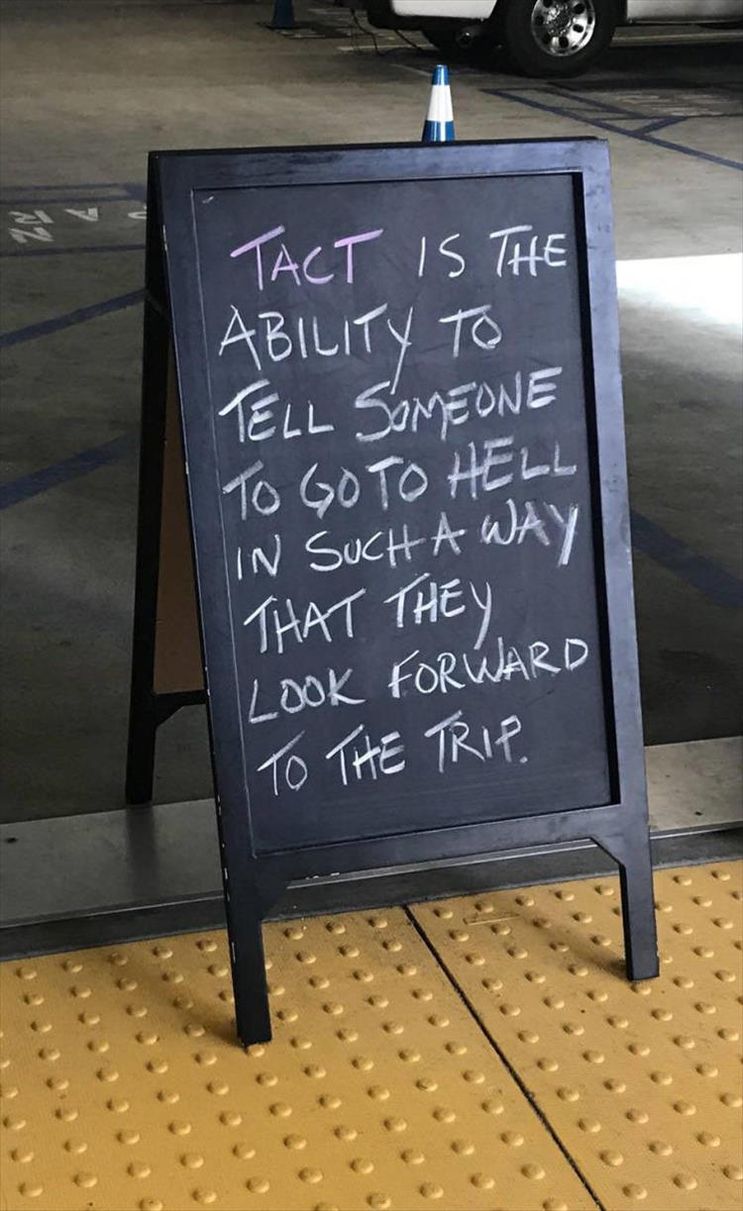 TACT IS THE
ABILITY TO
TELL SOMEONE
TO GO TO HELL
IN SUCH A WAY
THAT THEY
LOOK FORWARD
TO THE TRIP.